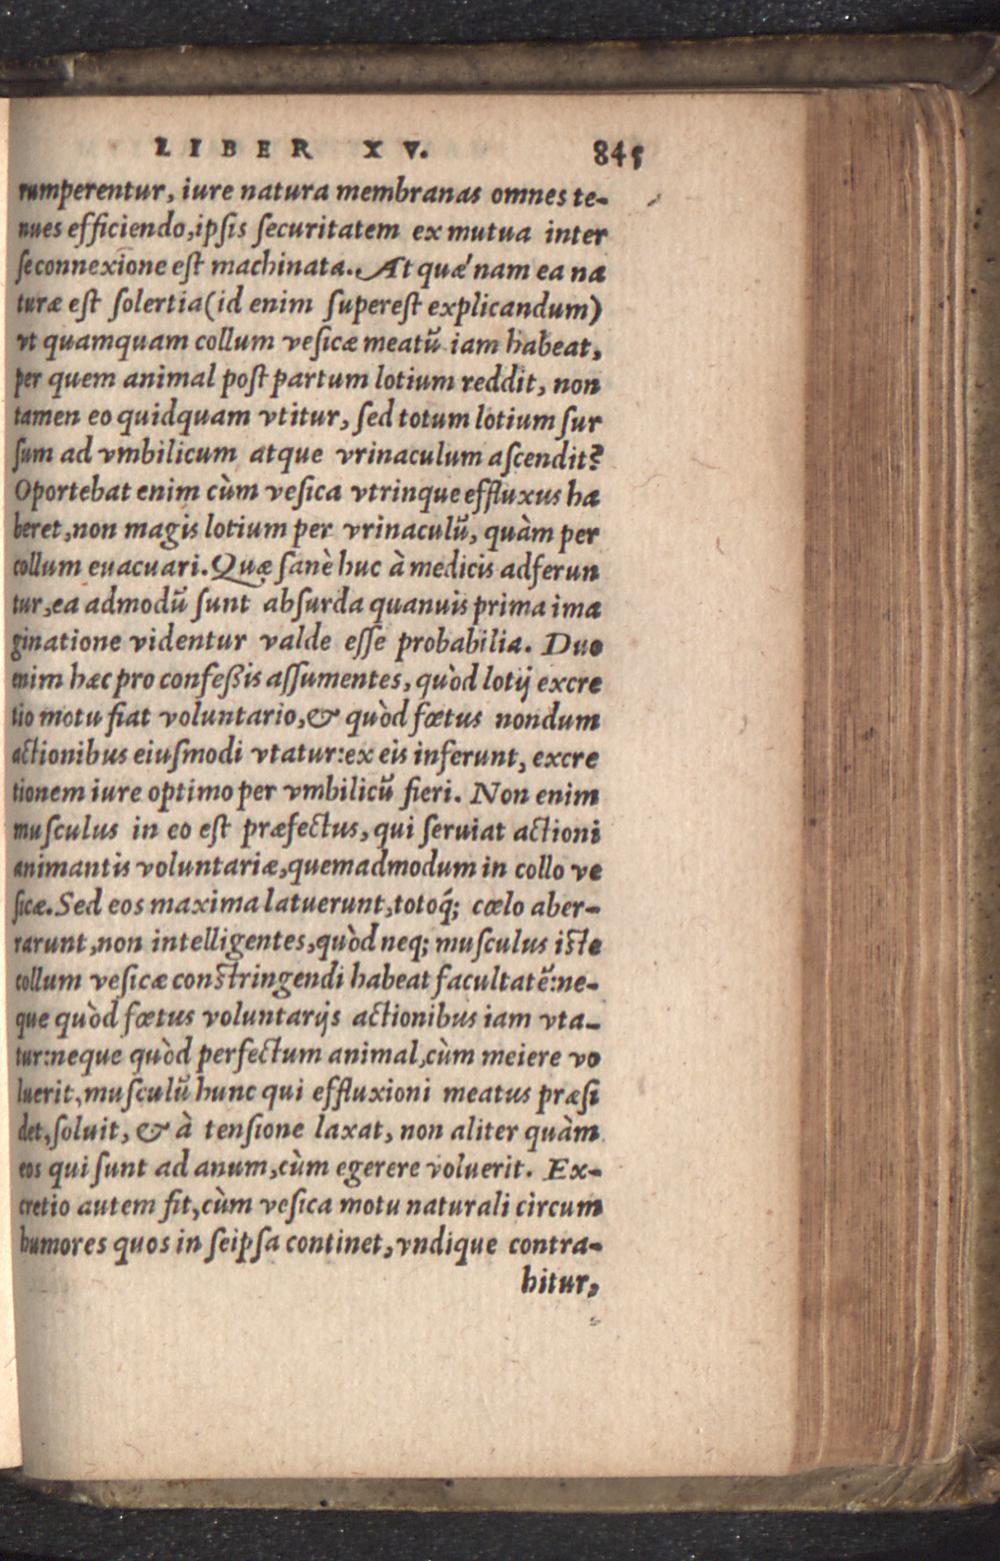 LIBER XV. 845
rumperentur, iure natura membranas omnes te-
nues efficiendo, ipſis ſecuritatem ex mutua inter
ſe connexione eſt machinata. At quæ'nam ea na
turæ eſt ſolertia (id enim ſupereſt explicandum)
vt quamquam collum veſicæ meatū iam habeat,
per quem animal poſt partum lotium reddit, non
tamen eo quidquam vtitur, ſed totum lotium ſur
ſum ad vmbilicum atque vrinaculum aſcendit?
Oportebat enim cùm veſica vtrinque effluxus ha
beret, non magis lotium per vrinaculū, quàm per
collum euacuari. Quæ ſanè huc à medicis adferun
tur, ea admodū ſunt abſurda quanuis prima ima
ginatione videntur valde eſſe probabilia. Duo
enim hæc pro confeßis aſſumentes, quòd lotij excre
tio motu fiat voluntario, & quòd fœtus nondum
actionibus eiuſmodi vtatur: ex eis inferunt, excre
tionem iure optimo per vmbilicū fieri. Non enim
muſculus in eo eſt præfectus, qui ſeruiat actioni
animantis voluntariæ, quemadmodum in collo ve
ſicæ. Sed eos maxima latuerunt, totoq́; cœlo aber-
rarunt, non intelligentes, quòd neq; muſculus iſte
collum veſicæ conſtringendi habeat facultatē: ne-
que quòd fœtus voluntarijs actionibus iam vta-
tur: neque quòd perfectum animal, cùm meiere vo
luerit, muſculū hunc qui effluxioni meatus præſi
det, ſoluit, & à tenſione laxat, non aliter quàm
eos qui ſunt ad anum, cùm egerere voluerit. Ex-
cretio autem fit, cùm veſica motu naturali circum
humores quos in ſeipſa continet, vndique contra-
hitur,